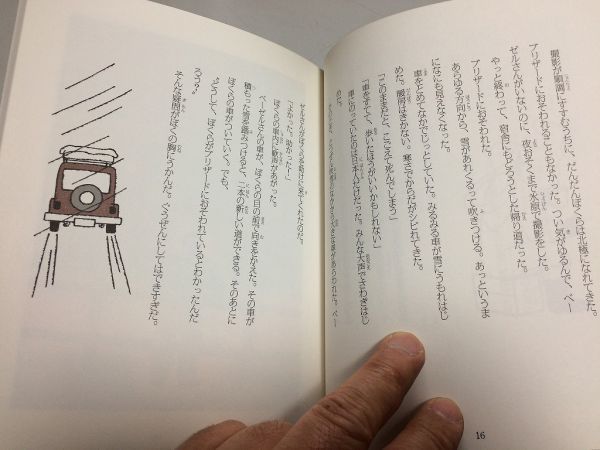 撮影が順調にすすむうちに、だんだんぼくらは北極になれてきた。
ブリザードにおそわれることもなかった。つい気がゆるんで、ベー
ゼルさんがいないのに、夜おそくまで氷原で撮影をした。
やっと終わって、宿舎にもどろうとした帰り道だった。
ブリザードにおそわれた。
あらゆる方向から、雪があれくるって吹きつける。あっというま
になにも見えなくなった。
車をとめてなかでじっとしていた。みるみる車が雪にうもれはじ
めた。暖房はきかない。寒さでからだがシビれてきた。
「このままだと、こごえて死んでしまう」
「車をすてて、歩いたほうがいいかもしれない」
車に乗っていたのは日本人だけだった。みんな大声でさわぎはじ
めた。
16
ゼルさんがぼくらを助けに来てくれたのだ。
「よかった。助かったー」
ぼくらの車内に歓声があがった。
ベーゼルさんの車が、ぼくらの目の前で向きをかえた。その車が
積もった雪を踏みつけると、二本の新しい道ができる。そのあとに
ぼくらの車がついていく。でも、
どうして、ぼくらがブリザードにおそわれているとわかったんだ
ろう?
そんな疑問がぼくの胸にうかんだ。ぐうぜんにしてはできすぎだ。